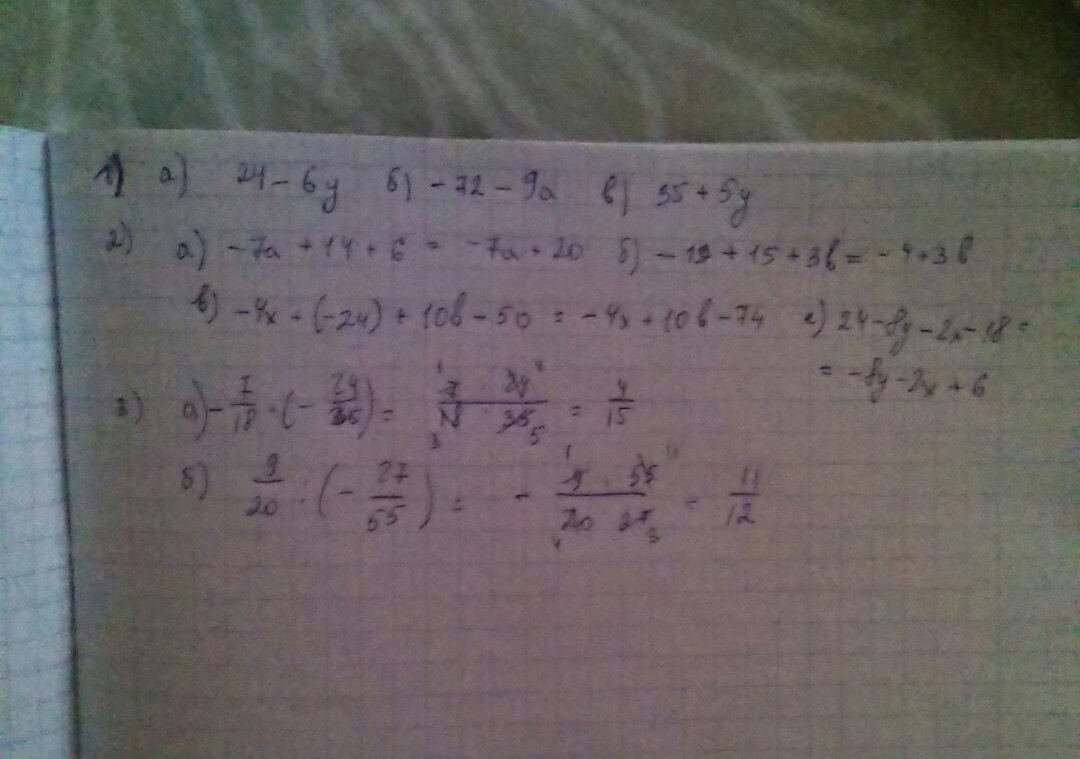 1) а) 24 - 6y б) - 72 - 9a в) 35 + 5y
2) а) - 7a + 14 + 6 = - 7a + 20 б) - 19 + 15 + 3b = - 4 + 3b
в) - 4x + (-24) + 10b - 50 = - 4x + 10b - 74 г) 24 - 8y - 2x - 18 =
= - 8y - 2x + 6
3) а) - 7/18 · (- 24/35) = 7 · 24 / 18 · 35 = 4/15
б) 9/20 : (- 27/55) = - 9 · 55 / 20 · 27 = - 11/12